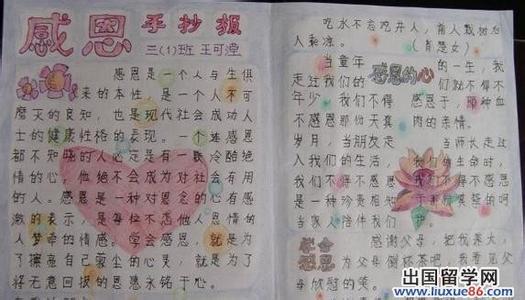 感恩 手抄报
三(1)班 王可
感恩是一个人与生俱
来的本性,是一个人不可
磨灭的良知,也是现代社会成功人
士的健康性格的表现。一个连感恩
都不知晓的人必定是有一颗冷酷绝
情的心,他绝不会成为对社会有用
的人。感恩是一种对恩念的心有感
激的表示,是每位不忘他人恩情的
人梦牵的情感,学会感恩,就是为
了擦亮自己蒙尘的心灵,就是为了
将无意回报的恩惠永铭于心。
吃水不忘吃井人,前人栽树后
人乘凉。 (肖楚女)
感恩的心
当童年
走过我们的
年少,我们不得
不感恩那份天真
岁月,当朋友走
入我们的生活,
我们不得不感恩
是一种珍贵相
当家人陪伴我们
的一生,我
们就不得不
感恩于,那种血
肉的亲情。
当师长走过
我们的生命时,
我们不得不感恩
学会感恩
感谢父母,把我养大,
为父母倒杯茶吧,我看
父母欣慰的笑。
出国留学网
www.liuxue86.com